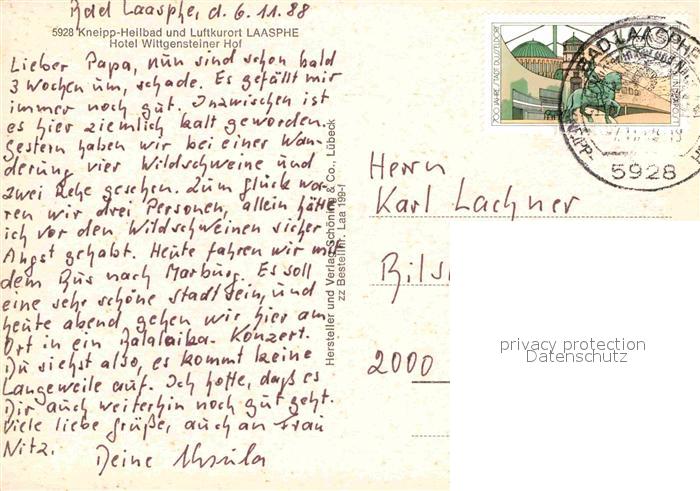 Bad Laasphe, d. 6.11.88
5928 Kneipp-Heilbad und Luftkurort LAASPHE
Hotel Wittgensteiner Hof
Lieber Papa, nun sind schon bald
3 Wochen um, schade. Es gefällt mir
immer noch gut. Inzwischen ist
es hier ziemlich kalt geworden.
Gestern haben wir bei einer Wan-
derung vier Wildschweine und
zwei Rehe gesehen. Zum Glück wa-
ren wir drei Personen, allein hätte
ich vor den Wildschweinen sicher
Angst gehabt. Heute fahren wir mit
dem Bus nach Marburg. Es soll
eine sehr schöne Stadt sein, und
heute abend gehen wir hier am
Ort in ein Balalaika-Konzert.
Du siehst also, es kommt keine
Langeweile auf. Ich hoffe, daß es
Dir auch weiterhin noch gut geht.
Viele liebe Grüße, auch an Frau
Nitz.
Deine Ursula
Hersteller und Verlag Schöning & Co., Lübeck
zz Bestellnr. Laa 199-f
700 JAHRE STADT DÜSSELDORF
BAD LAASPHE
5928
Herrn
Karl Lachner
Bils
2000
privacy protection
Datenschutz